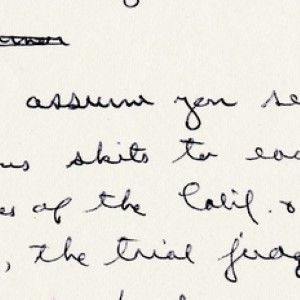 assume you se
us skits to ea
es of the Calif. &
, the trial judg